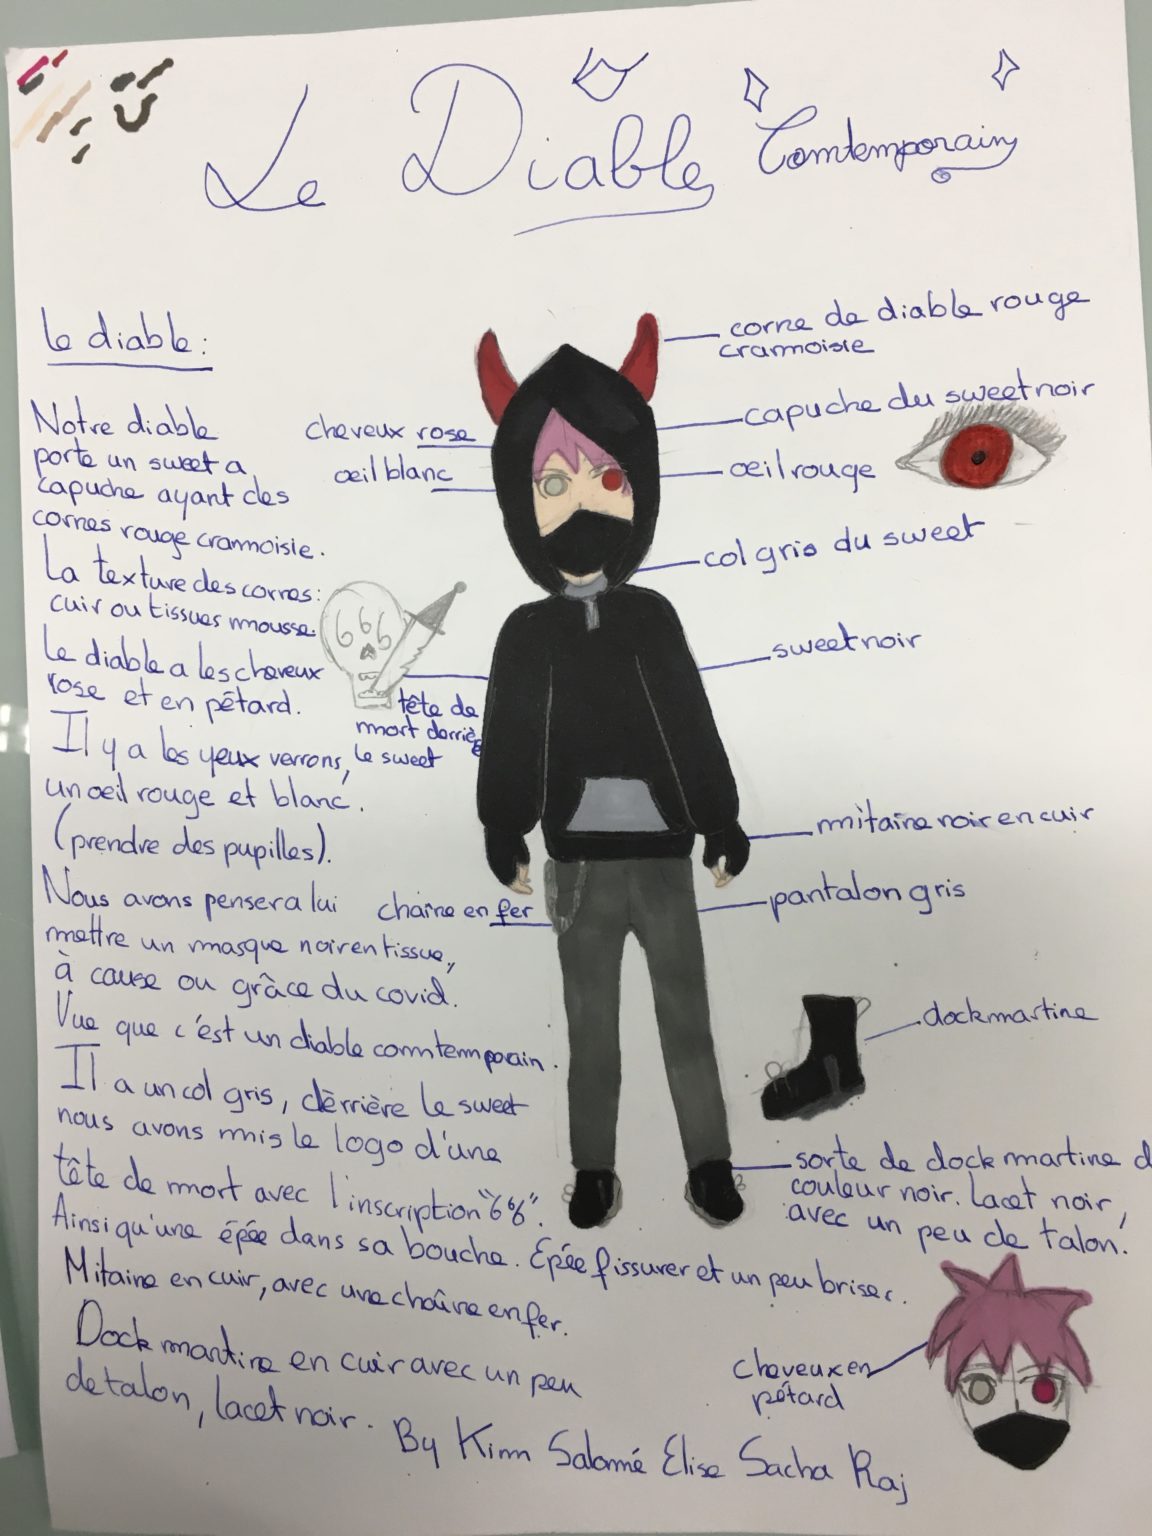 Le Diable Comtemporain
le diable :
Notre diable
porte un sweet a
capuche ayant des
cornes rouge crammoisie.
La texture des cornes :
cuir ou tissues mousse.
Le diable a les cheveux
rose et en pétard.
Il y a les yeux verrons,
un oeil rouge et blanc.
(prendre des pupilles).
Nous avons penser a lui
mettre un masque noir en tissue,
à cause ou grâce du covid.
Vue que c'est un diable comtemporain.
Il a un col gris, dèrrière le sweet
nous avons mis le logo d'une
tête de mort avec l'inscription "666".
Ainsi qu'une épée dans sa bouche. Epée fissurer et un peu briser.
Mitaine en cuir, avec une chaîne en fer.
Dock martine en cuir avec un peu
de talon, lacet noir.
By Kim Salomé Elise Sacha Raj
cheveux rose
œil blanc
666
tête de
mort derrière
le sweet
chaîne en fer
corne de diable rouge
crammoisie
capuche du sweet noir
œil rouge
col gris du sweet
sweet noir
mitaine noir en cuir
pantalon gris
dockmartine
sorte de dock martine d
couleur noir. Lacet noir,
avec un peu de talon.
cheveux en
pétard